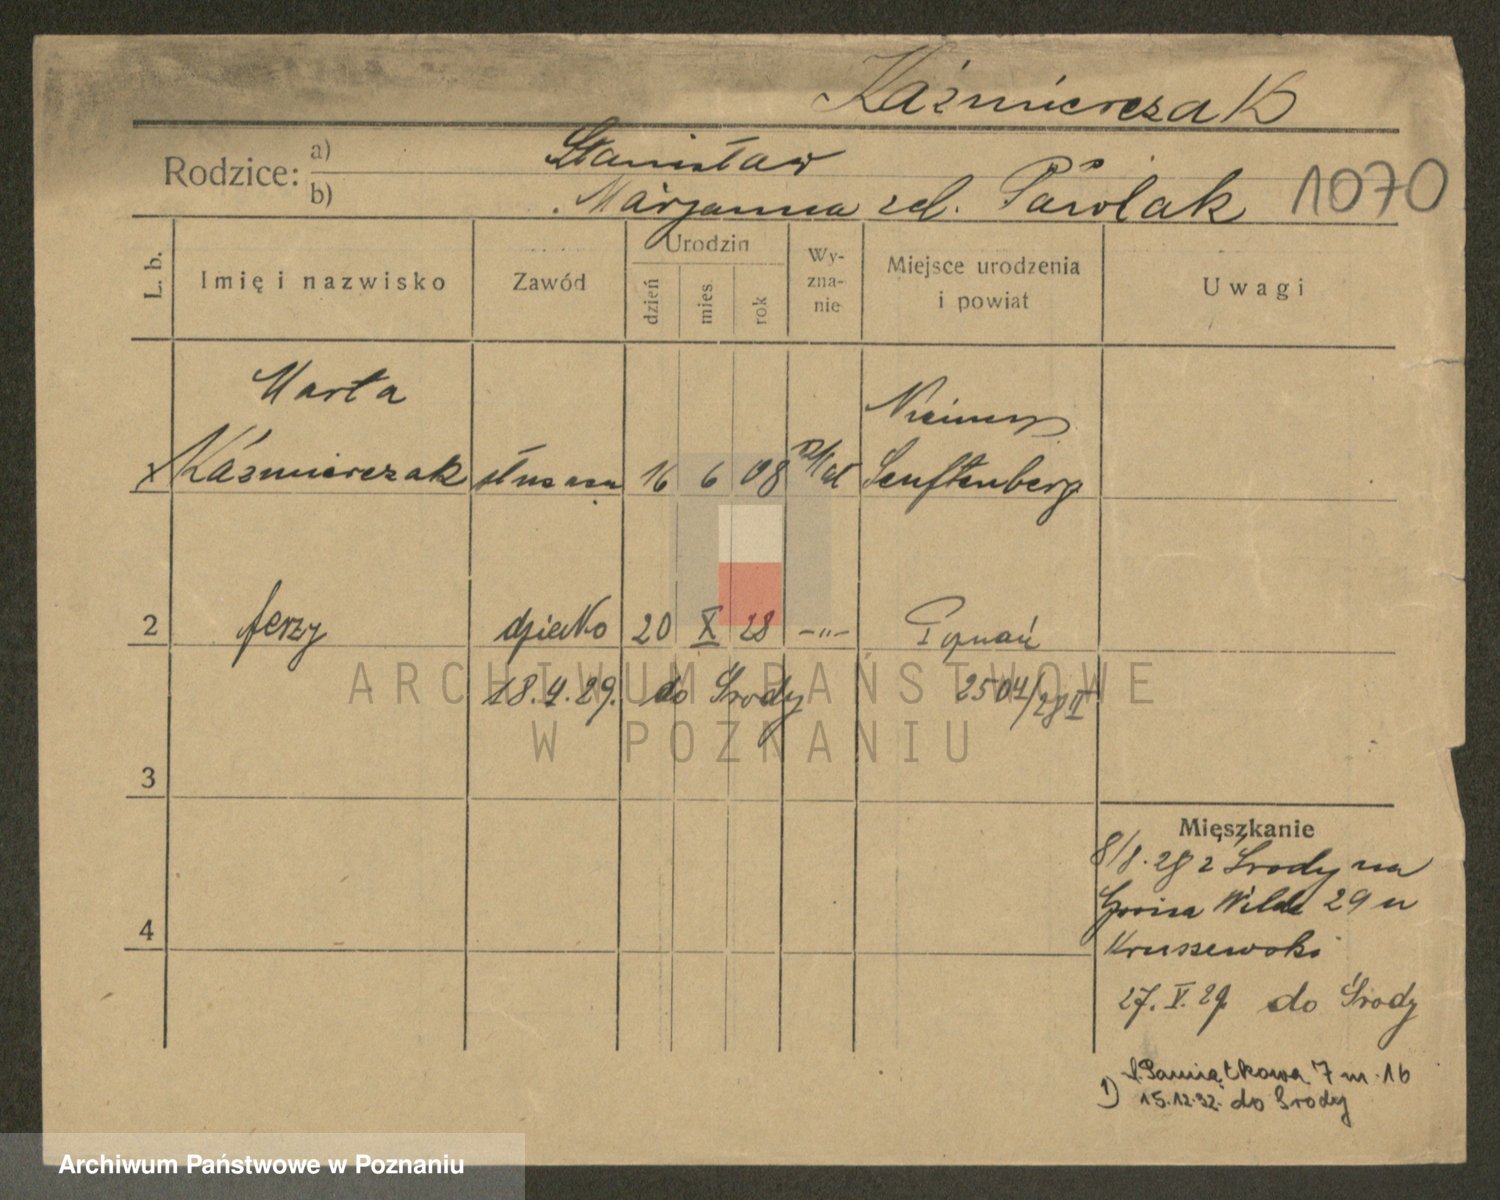 Kaźmierczak
Rodzice: a) Stanisław
b) Marjanna zd. Pawlak 1070
L. b. Imię i nazwisko Zawód Urodzin dzień mies. rok Wyznanie Miejsce urodzenia i powiat Uwagi
Marta
Kaźmierczak służąca 16 6 08 Senftenberg
2 Jerzy dziecko 20 X 28 -"- Poznań
18.4.29. do Środy 2504/28 II
3
Mieszkanie
8/8.28 z Środy na
Górna Wilda 29 u
Kruszewski
4
27.V.29 do Środy
1) Pamiątkowa 7 m. 16
15.12.32. do Środy
ARCHIWUM PAŃSTWOWE
W POZNANIU
Archiwum Państwowe w Poznaniu